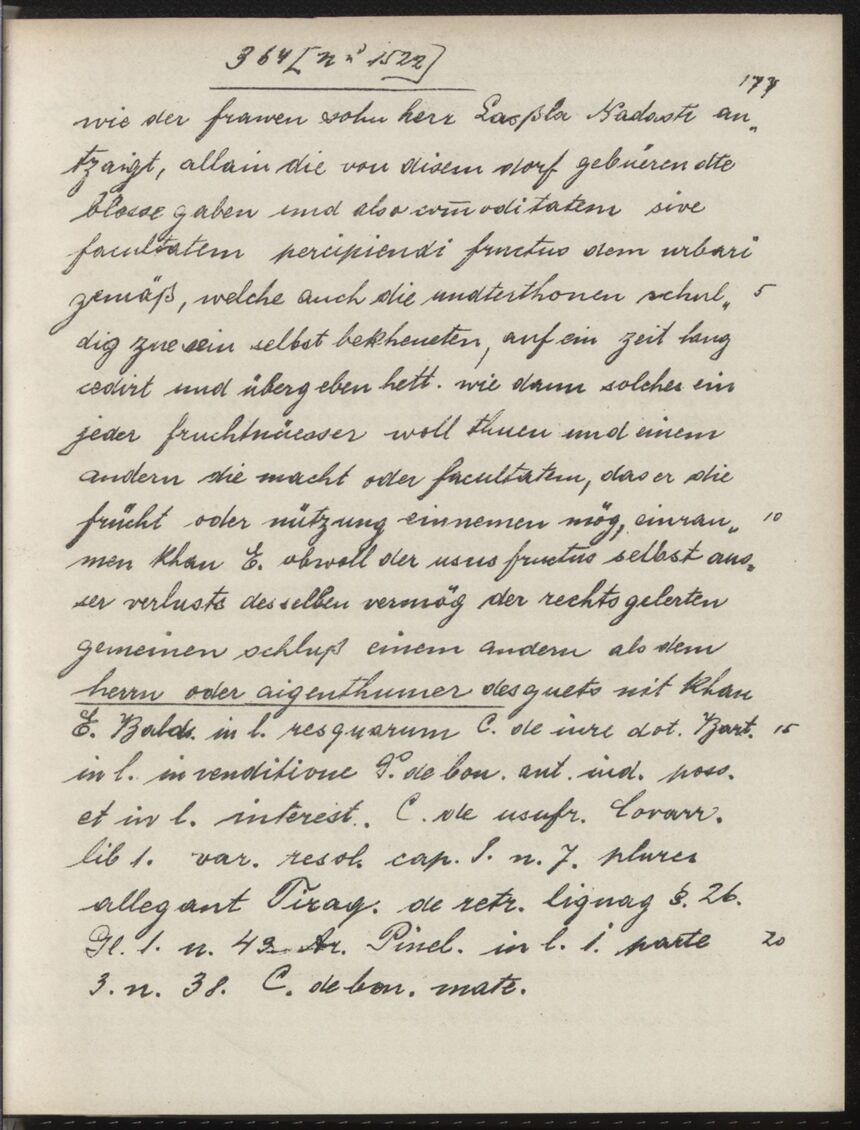 364 [nri 1522]
177
wie der frawen sohn herr Laßla Nadasti an„
tzaigt, allain die von disem dorf gebuerendte
blosse gaben und also com̄oditatem sive
facultatem percipiendi fructus dem urbari
gemäß, welche auch die undterthonen schul„ 5
dig zue sein selbst bekheneten, auf ein zeit lang
cedirt und übergeben hett. wie dann solches ein
jeder fruchtnüesser woll thuen und einem
andern die macht oder facultatem, das er die
frücht oder nützung einnemen mög, einrau„ 10
men khan E. obwoll der usus fructus selbst aus„
ser verlusts desselben vermög der rechtsgelerten
gemeinen schluß einem andern als dem
herrn oder aigenthumer des guets nit khan
E. Bald. in l. res quarum C. de iure dot. Bart. 15
in l. in venditione P. de bon. aut. iud. poss.
et in l. interest. C. de usufr. Covarr.
lib 1. var. resol. cap. 8. n. 7. plures
allegant Tirag. de retr. lignag §. 26.
Gl. 1. n. 49 Ar. Pinel. in l. 1. parte 20
3. n. 38. C. de bon. mate.